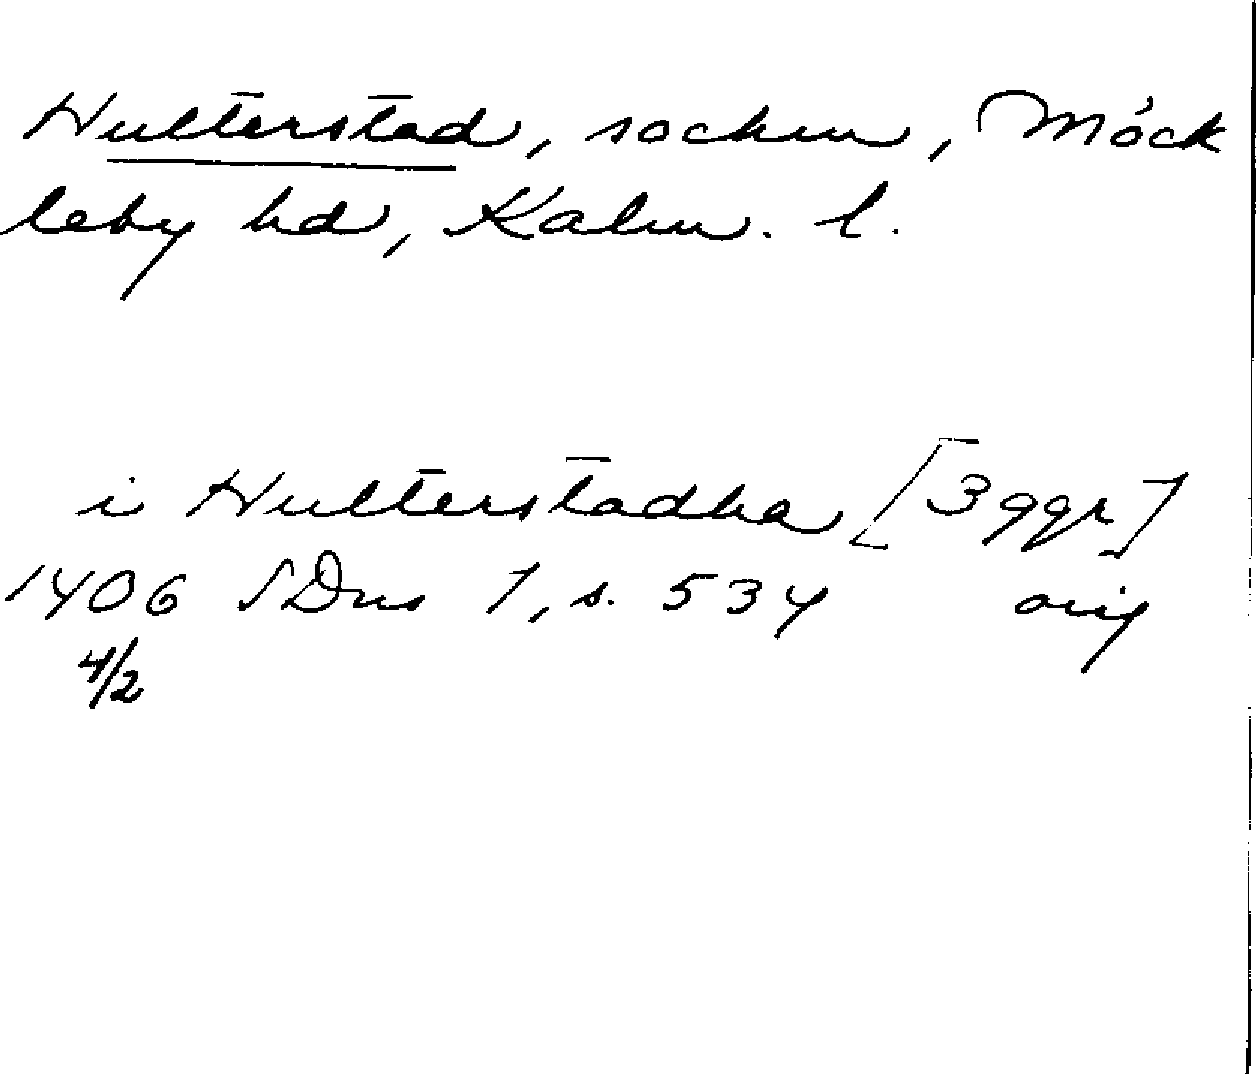 Hulterstad, socken, Möck
leby hd, Kalm. l.
i Hulterstadha [3 ggr]
1406 SDns 1, s. 534 orig
4/2